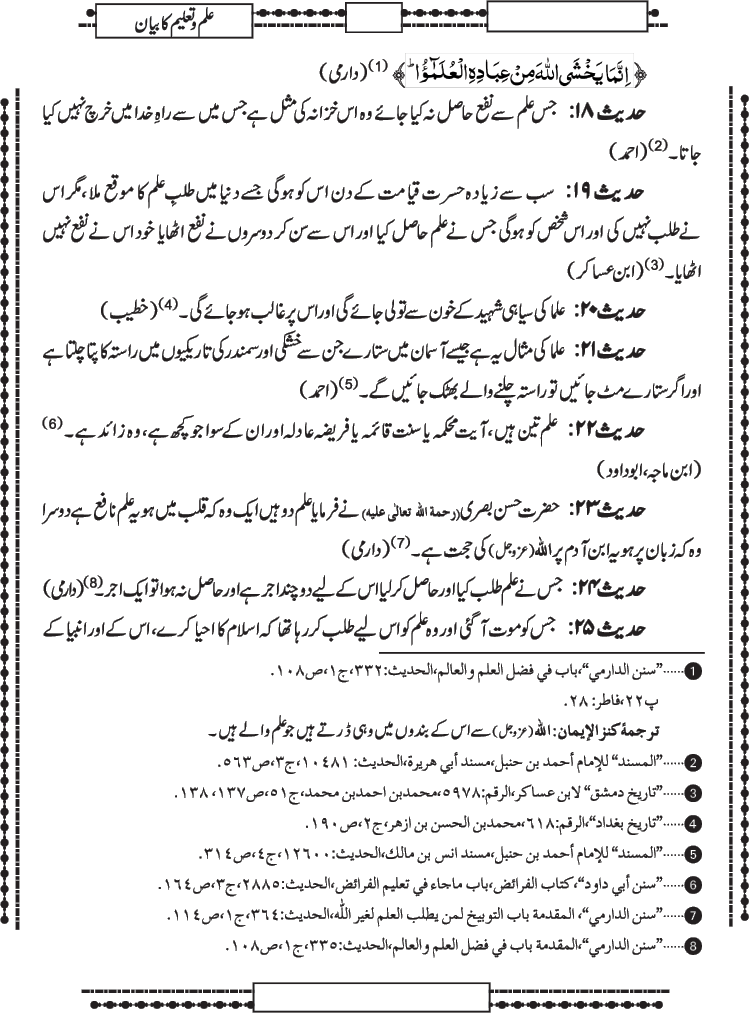 علم وتعلیم کا بیان
﴿ اِنَّمَا یَخْشَى اللّٰهَ مِنْ عِبَادِهِ الْعُلَمٰٓؤُاؕ ﴾ (1) (دارمی)
حدیث ۱۸: جس علم سے نفع حاصل نہ کیا جائے وہ اس خزانہ کی مثل ہے جس میں سے راہِ خدا میں خرچ نہیں کیا
جاتا۔ (2) (احمد)
حدیث ۱۹: سب سے زیادہ حسرت قیامت کے دن اس کو ہوگی جسے دنیا میں طلبِ علم کا موقع ملا، مگر اس
نے طلب نہیں کی اور اس شخص کو ہوگی جس نے علم حاصل کیا اور اس سے سن کر دوسروں نے نفع اٹھایا خود اس نے نفع نہیں
اٹھایا۔ (3) (ابن عساکر)
حدیث ۲۰: علما کی سیاہی شہید کے خون سے تولی جائے گی اور اس پر غالب ہو جائے گی۔ (4) (خطیب)
حدیث ۲۱: علما کی مثال یہ ہے جیسے آسمان میں ستارے جن سے خشکی اور سمندر کی تاریکیوں میں راستہ کا پتا چلتا ہے
اور اگر ستارے مٹ جائیں تو راستہ چلنے والے بھٹک جائیں گے۔ (5) (احمد)
حدیث ۲۲: علم تین ہیں، آیت محکمہ یا سنت قائمہ یا فریضہ عادلہ اور ان کے سوا جو کچھ ہے، وہ زائد ہے۔ (6)
(ابن ماجہ، ابوداود)
حدیث ۲۳: حضرت حسن بصری (رحمۃ اللہ تعالٰی علیہ) نے فرمایا علم دو ہیں ایک وہ کہ قلب میں ہو یہ علم نافع ہے دوسرا
وہ کہ زبان پر ہو یہ ابن آدم پر اللہ (عزوجل) کی حجت ہے۔ (7) (دارمی)
حدیث ۲۴: جس نے علم طلب کیا اور حاصل کرلیا اس کے لیے دو چند اجر ہے اور حاصل نہ ہوا تو ایک اجر۔ (8) (دارمی)
حدیث ۲۵: جس کو موت آگئی اور وہ علم کو اس لیے طلب کر رہا تھا کہ اسلام کا احیا کرے، اس کے اور انبیا کے
1 ......”سنن الدارمي“، باب في فضل العلم والعالم، الحديث: ۳۳۲، ج۱، ص۱۰۸.
پ۲۲، فاطر: ۲۸.
ترجمۂ کنز الإیمان: اللہ (عزوجل) سے اس کے بندوں میں وہی ڈرتے ہیں جو علم والے ہیں۔
2 ......”المسند“ للإمام أحمد بن حنبل، مسند أبي هريرة، الحديث: ۱۰۴۸۱، ج۳، ص۵۶۳.
3 ......”تاريخ دمشق“ لابن عساكر، الرقم: ۵۹۷۸، محمدبن احمدبن محمد، ج۵۱، ص۱۳۷، ۱۳۸.
4 ......”تاريخ بغداد“، الرقم: ۶۱۸، محمدبن الحسن بن ازهر، ج۲، ص۱۹۰.
5 ......”المسند“ للإمام أحمد بن حنبل، مسند انس بن مالك، الحديث: ۱۲۶۰۰، ج۴، ص۳۱۴.
6 ......”سنن أبي داود“، كتاب الفرائض، باب ماجاء في تعليم الفرائض، الحديث: ۲۸۸۵، ج۳، ص۱۶۴.
7 ......”سنن الدارمي“، المقدمة باب التوبيخ لمن يطلب العلم لغير اللّٰه، الحديث: ۳۶۴، ج۱، ص۱۱۴.
8 ......”سنن الدارمي“، المقدمة باب في فضل العلم والعالم، الحديث: ۳۳۵، ج۱، ص۱۰۸.